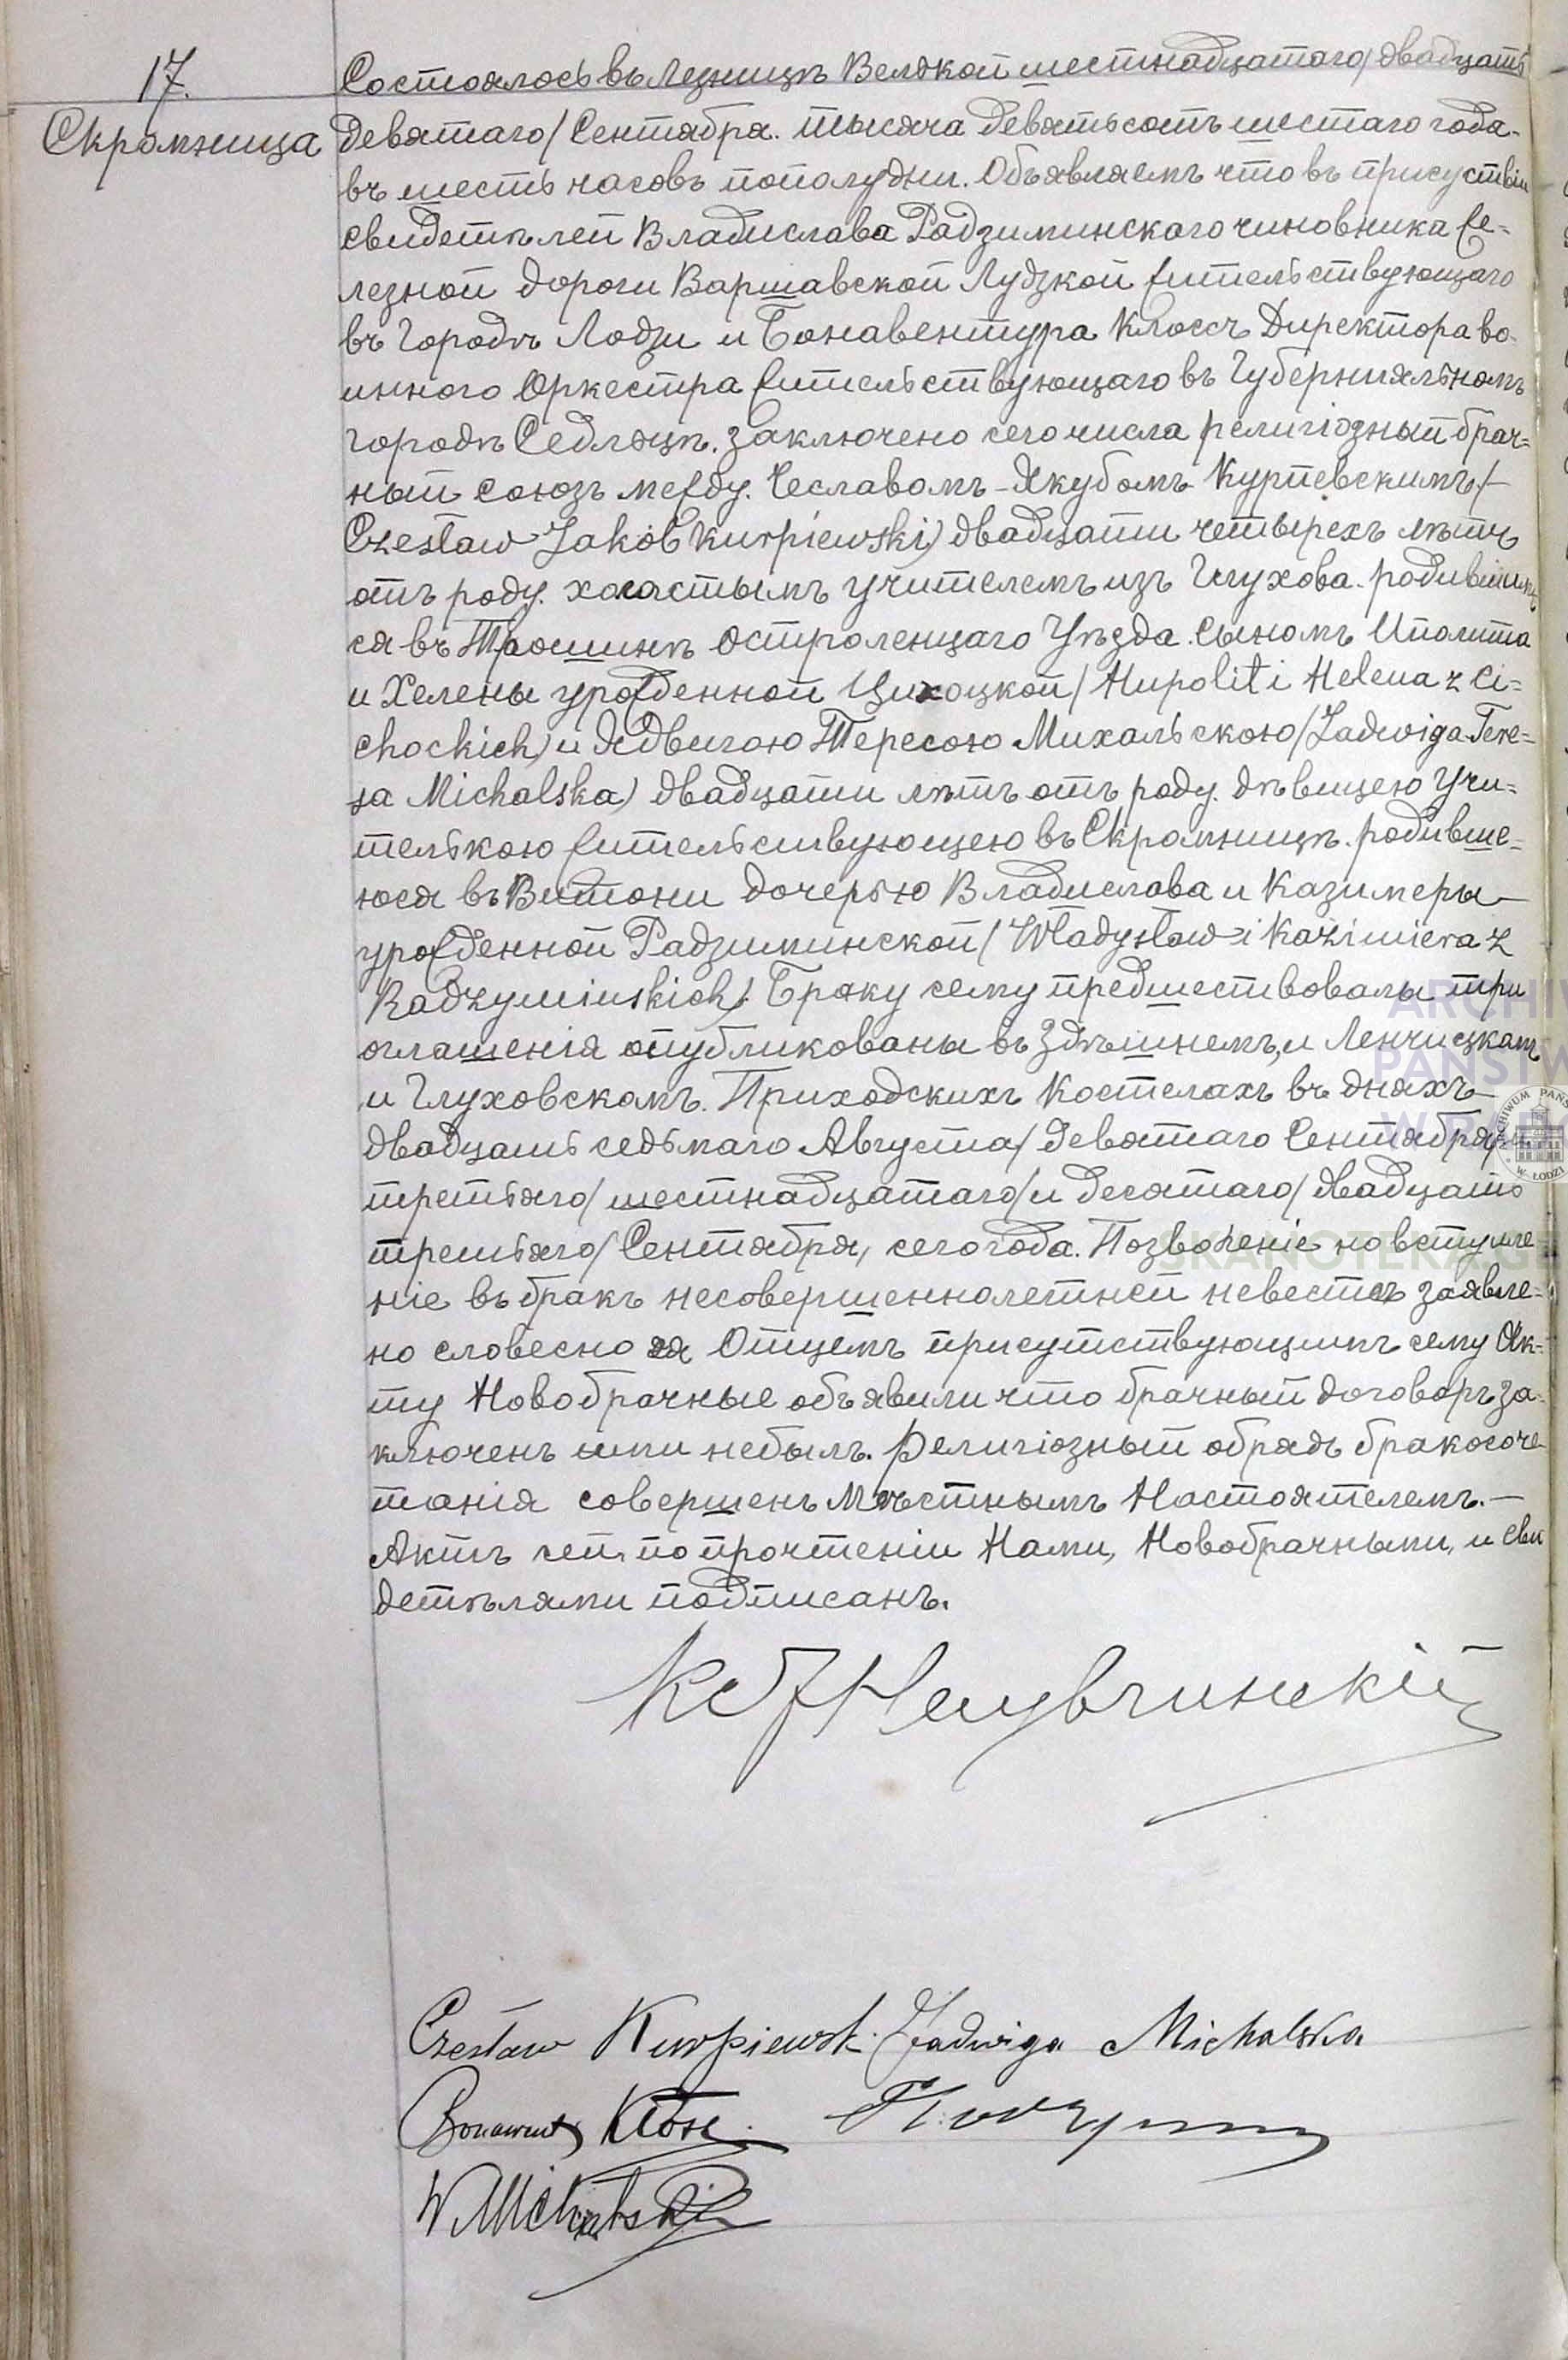 17.
Скромница
Состоялось въ Лезницѣ Велкой шестнадцатаго/двадцать
девятаго/ Сентября. тысяча девятьсотъ шестаго года.
въ шесть часовъ пополудни. Объявляемъ что въ присуствіи
свидетѣлей Владислава Радзиминскаго чиновника Же-
лезной дороги Варшавской Лудзкой жительствующаго
въ Городѣ Лодзи и Бонавентура Клоссъ Директора во-
инного Оркестра жительствующаго въ Губерніяльномъ
городѣ Седлѧцѣ. заключено сего числа религіозный брач-
ный союзъ между. Чеславомъ-Якубомъ Курпевскимъ/-
Czesław Jakób Kurpiewski) двадцати четырехъ лѣтъ
отъ роду. холастымъ учителемъ изъ Глухова. родившим
ся въ Трошинѣ Остроленцаго Уѣзда. сыномъ Иполита
и Хелены урожденной Цихоцкой/ Hupolit i Helena z Ci=
chockich) и Ядвигою Тересою Михальскою/Jadwiga Tere=
sa Michalska) двадцати лѣтъ отъ роду. дѣвицею Учи=
телькою жительствующею въ Скромницѣ. родивше=
юся въ Витони дочерью Владислава и Казимеры —
урожденной Радзиминской/ Władysław i Kazimiera z
Radzymińskich/. Браку сему предшествовалы три
оглашенія опубликованы въ Здѣшнемъ, и Ленчицкам
и Глуховскомъ. Приходскихъ Костелахъ въ дняхъ —
двадцать седьмаго Августа/ девятаго Сентября/
третьяго/ шестнадцатаго/и десятаго/ двадцать
третьяго/ Сентября, сего года. Позволеніе на вступле
ніе въ бракъ несовершеннолетней невесте заявле=
но словесно Отцемъ присутствующимъ сему Ак=
ту Новобрачные объявили что брачный договоръ за-
ключенъ ими небылъ. Религіозный обрядъ бракосоче
танія совершенъ Мѣстнымъ Настоятелемъ. —
Актъ сей, по прочтеніи Нами, Новобрачными, и Сви
детѣлями подписанъ.
Czesław Kurpiewsk. Jadwiga Michalska
Bonawent Kloss.
W Michalski
ARCHIW
PAŃSTW
W
ARCHIWUM PAŃS
W ŁODZI
SKANOTEKA.GE